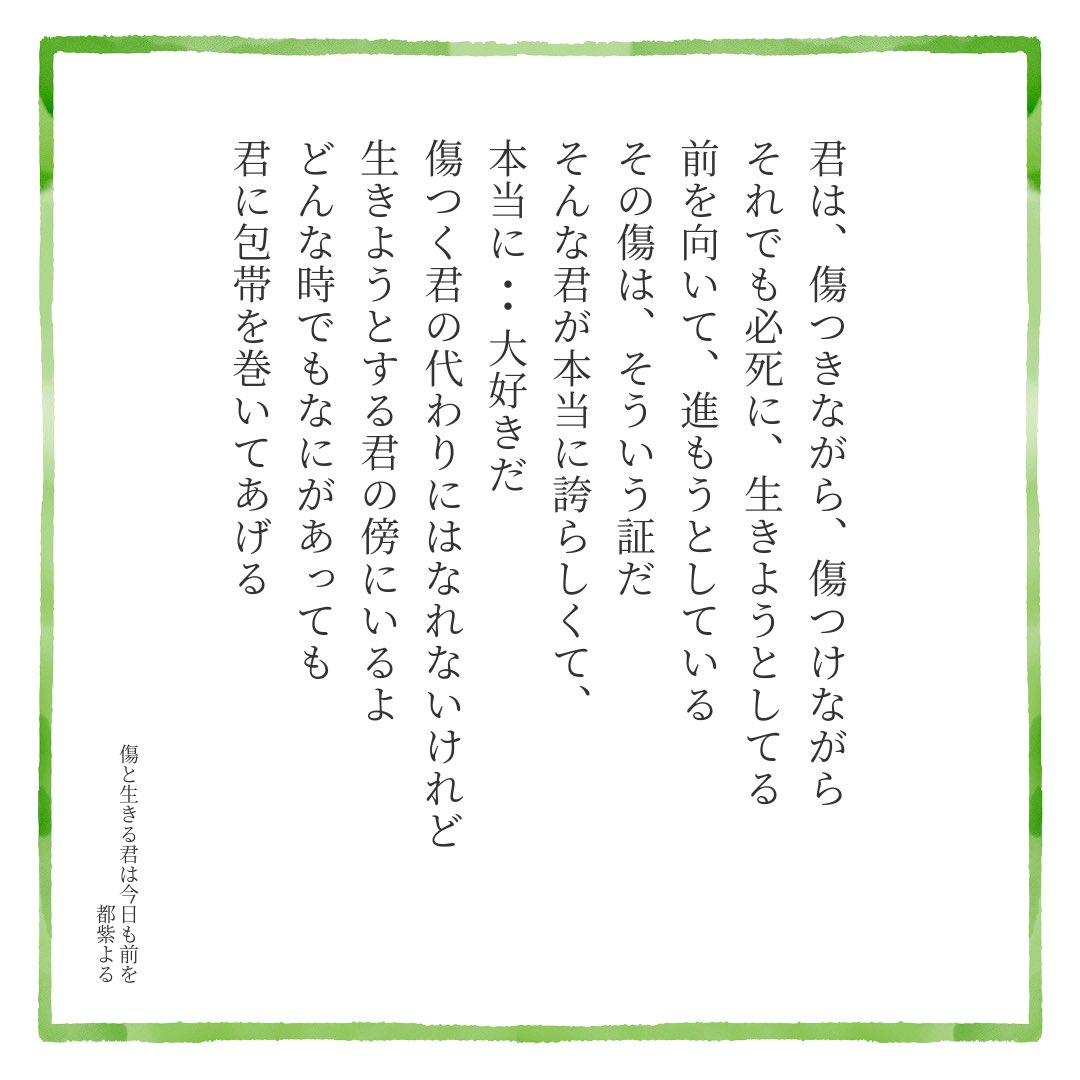 君は、傷つきながら、傷つけながら
それでも必死に、生きようとしてる
前を向いて、進もうとしている
その傷は、そういう証だ
そんな君が本当に誇らしくて、
本当に・・大好きだ
傷つく君の代わりにはなれないけれど
生きようとする君の傍にいるよ
どんな時でもなにがあっても
君に包帯を巻いてあげる
傷と生きる君は今日も前を
都紫よる